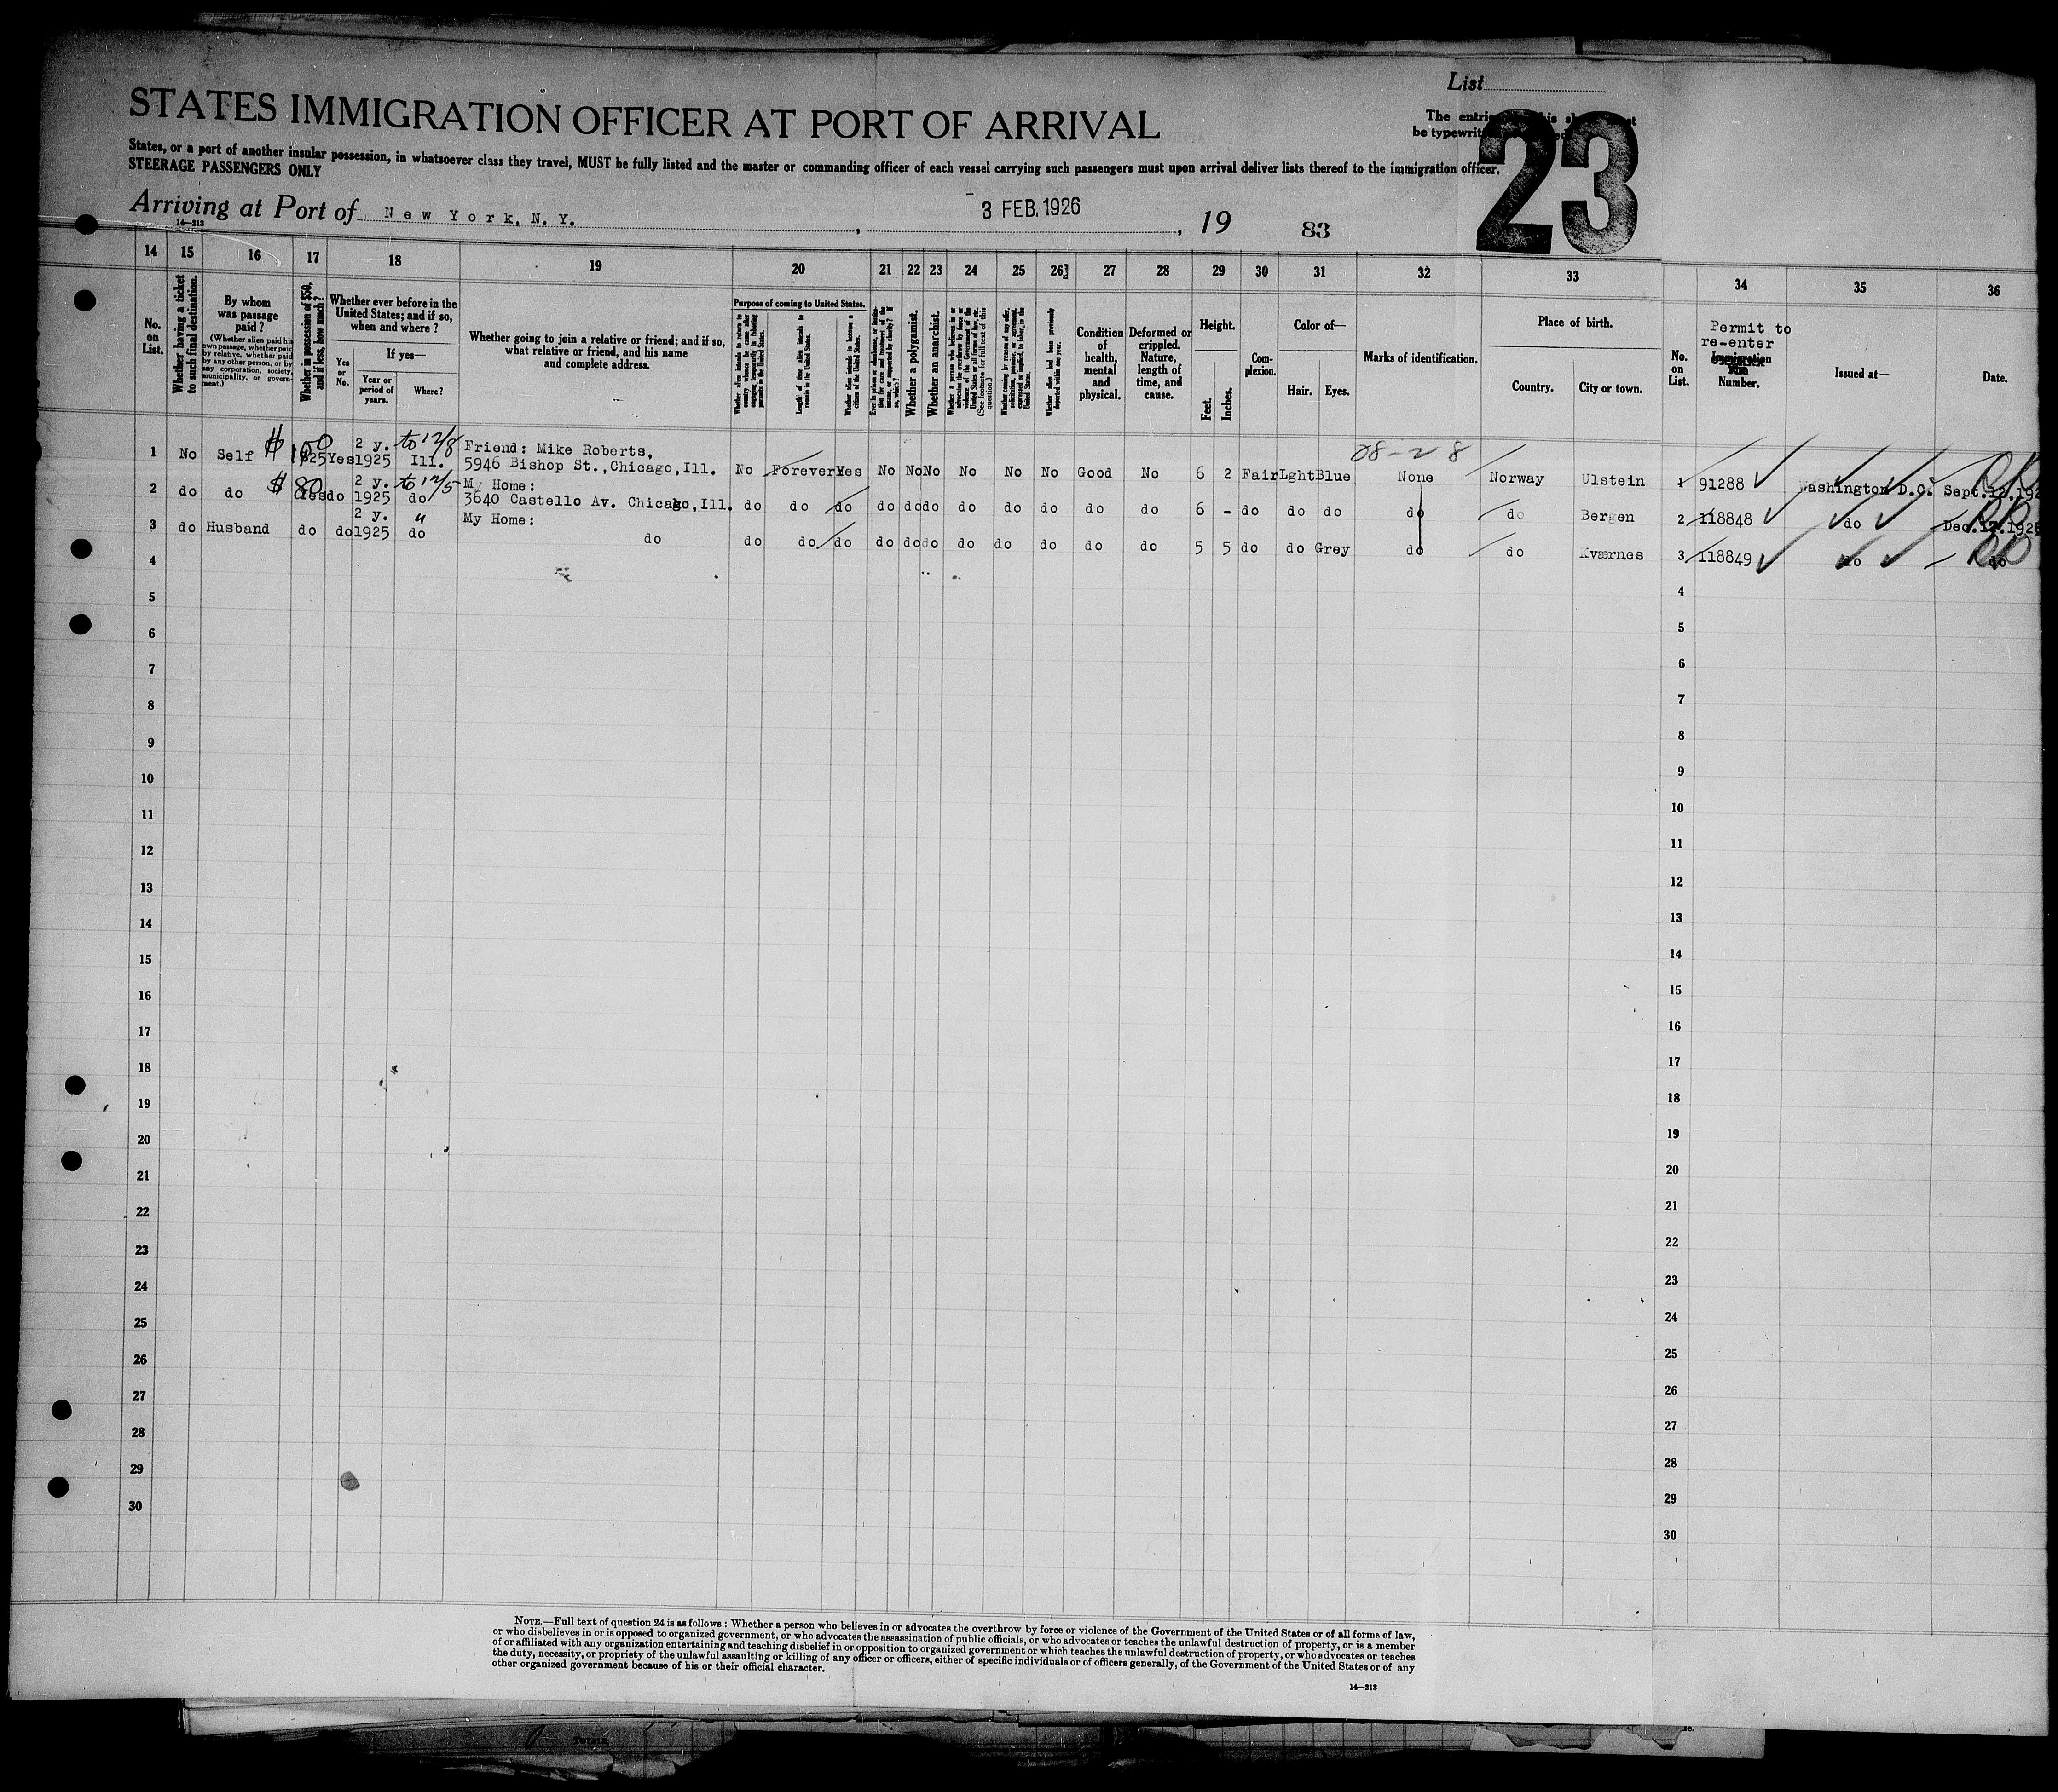 List
STATES IMMIGRATION OFFICER AT PORT OF ARRIVAL
The entries
be typewritten
States, or a port of another insular possession, in whatsoever class they travel, MUST be fully listed and the master or commanding officer of each vessel carrying such passengers must upon arrival deliver lists thereof to the immigration officer.
STEERAGE PASSENGERS ONLY
23
Arriving at Port of New York, N. Y. , 3 FEB. 1926 , 19 83
14—213
14 15 16 17 18 19 20 21 22 23 24 25 26 27 28 29 30 31 32 33 34 35 36
No. on List.
Whether having a ticket to such final destination.
By whom was passage paid?
(Whether alien paid his own passage, whether paid by relative, whether paid by any other person, or by any corporation, society, municipality, or government.)
Whether in possession of $50, and if less, how much?
Whether ever before in the United States; and if so, when and where?
Yes or No.
If yes—
Year or period of years.
Where?
Whether going to join a relative or friend; and if so, what relative or friend, and his name and complete address.
Purpose of coming to United States.
Whether alien intends to return to country whence he came after engaging temporarily in laboring pursuits in the United States.
Length of time alien intends to remain in the United States.
Whether alien intends to become a citizen of the United States.
Whether a polygamist.
Whether an anarchist.
Whether a person who believes in or advocates the overthrow by force or violence of the Government of the United States or all forms of law, etc. (See footnote for full text of this question.)
Whether coming by reason of any offer, solicitation, promise, or agreement, expressed or implied, to labor in the United States.
Whether alien had been previously deported within one year.
Condition of health, mental and physical.
Deformed or crippled. Nature, length of time, and cause.
Height.
Feet.
Inches.
Complexion.
Color of—
Hair.
Eyes.
Marks of identification.
Place of birth.
Country.
City or town.
No. on List.
Permit to
re-enter
Number.
Issued at—
Date.
2 y. to 12/8 Friend: Mike Roberts, 28-2 8
1 No Self $ 100 Yes 1925 Ill. 5946 Bishop St., Chicago, Ill. No Forever Yes No No No No No No Good No 6 2 Fair Lght Blue None Norway Ulstein 1 91288 Washington D.C. Sept.12,192
2 y. to 12/5 My Home:
2 do do $ 80 do 1925 do 3640 Castello Av. Chicago, Ill. do do do do do do do do do do do 6 - do do do do do Bergen 2 118848 do Dec.12.192
2 y. " My Home:
3 do Husband do do 1925 do do do do do do do do do do do do do 5 5 do do Grey do do Kværnes 3 118849 do do
4 4
5 5
6 6
7 7
8 8
9 9
10 10
11 11
12 12
13 13
14 14
15 15
16 16
17 17
18 18
19 19
20 20
21 21
22 22
23 23
24 24
25 25
26 26
27 27
28 28
29 29
30 30
NOTE.—Full text of question 24 is as follows: Whether a person who believes in or advocates the overthrow by force or violence of the Government of the United States or of all forms of law,
or who disbelieves in or is opposed to organized government, or who advocates the assassination of public officials, or who advocates or teaches the unlawful destruction of property, or is a member
of or affiliated with any organization entertaining and teaching disbelief in or opposition to organized government or which teaches the unlawful destruction of property, or who advocates or teaches
the duty, necessity, or propriety of the unlawful assaulting or killing of any officer or officers, either of specific individuals or of officers generally, of the Government of the United States or of any
other organized government because of his or their official character.
14—213